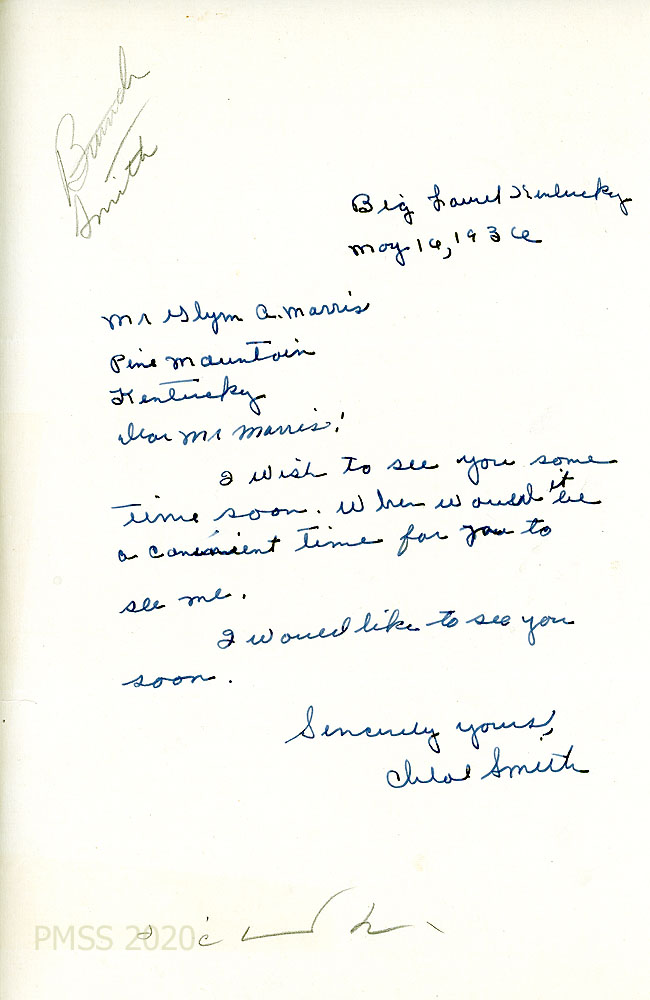 Bunch
Smith
Big Laurel Kentucky
May 16, 1936
Mr Glym A. Marris
Pine Mountain
Kentucky
Dear Mr Marris!
I wish to see you some
time soon. When would it be
a convinient time for you to
see me.
I would like to see you
soon.
Sincerely yours,
Chloe Smith
PMSS 2020